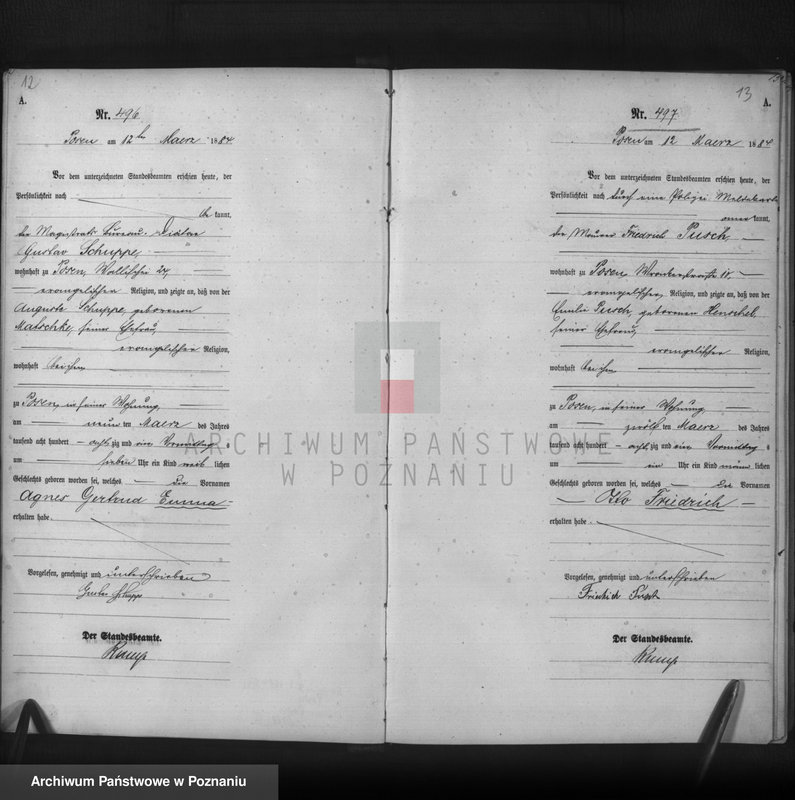 12
A.
Nr. 496.
Posen am 12ten Maerz 1884
Vor dem unterzeichneten Standesbeamten erschien heute, der
Persönlichkeit nach
be kannt,
der Magistrats Bureau-Diätar
Gustav Schuppe,
wohnhaft zu Posen, Wallischei 24
evangelischer Religion, und zeigte an, daß von der
Auguste Schuppe, geborenen
Matschke, seiner Ehefrau,
evangelischer Religion,
wohnhaft bei ihm
zu Posen, in seiner Wohnung,
am neun ten Maerz des Jahres
tausend acht hundert achtzig und Vormittag s
um sieben Uhr ein Kind weib lichen
Geschlechts geboren worden sei, welches die Vornamen
Agnes Gertrud Emma
erhalten habe.
Vorgelesen, genehmigt und unterschrieben
Gustav Schuppe
Der Standesbeamte.
Kump
13
A.
Nr. 497
Posen am 12 Maerz 1884
Vor dem unterzeichneten Standesbeamten erschien heute, der
Persönlichkeit nach durch eine Polizei Meldekarte
aner kannt,
der Maurer Friedrich Pusch,
wohnhaft zu Posen
evangelischer Religion, und zeigte an, daß von der
Emilie Pusch, geborenen Henschel
seiner Ehefrau,
evangelischer Religion,
wohnhaft bei ihm
zu Posen, in seiner Wohnung
am zwölf ten Maerz des Jahres
tausend acht hundert achtzig und Vormittag s
um ein Uhr ein Kind männ lichen
Geschlechts geboren worden sei, welches die Vornamen
Otto Friedrich
erhalten habe.
Vorgelesen, genehmigt und unterschrieben
Friedrich Pusch
Der Standesbeamte.
Kump
ARCHIWUM PAŃSTWOWE
W POZNANIU
Archiwum Państwowe w Poznaniu